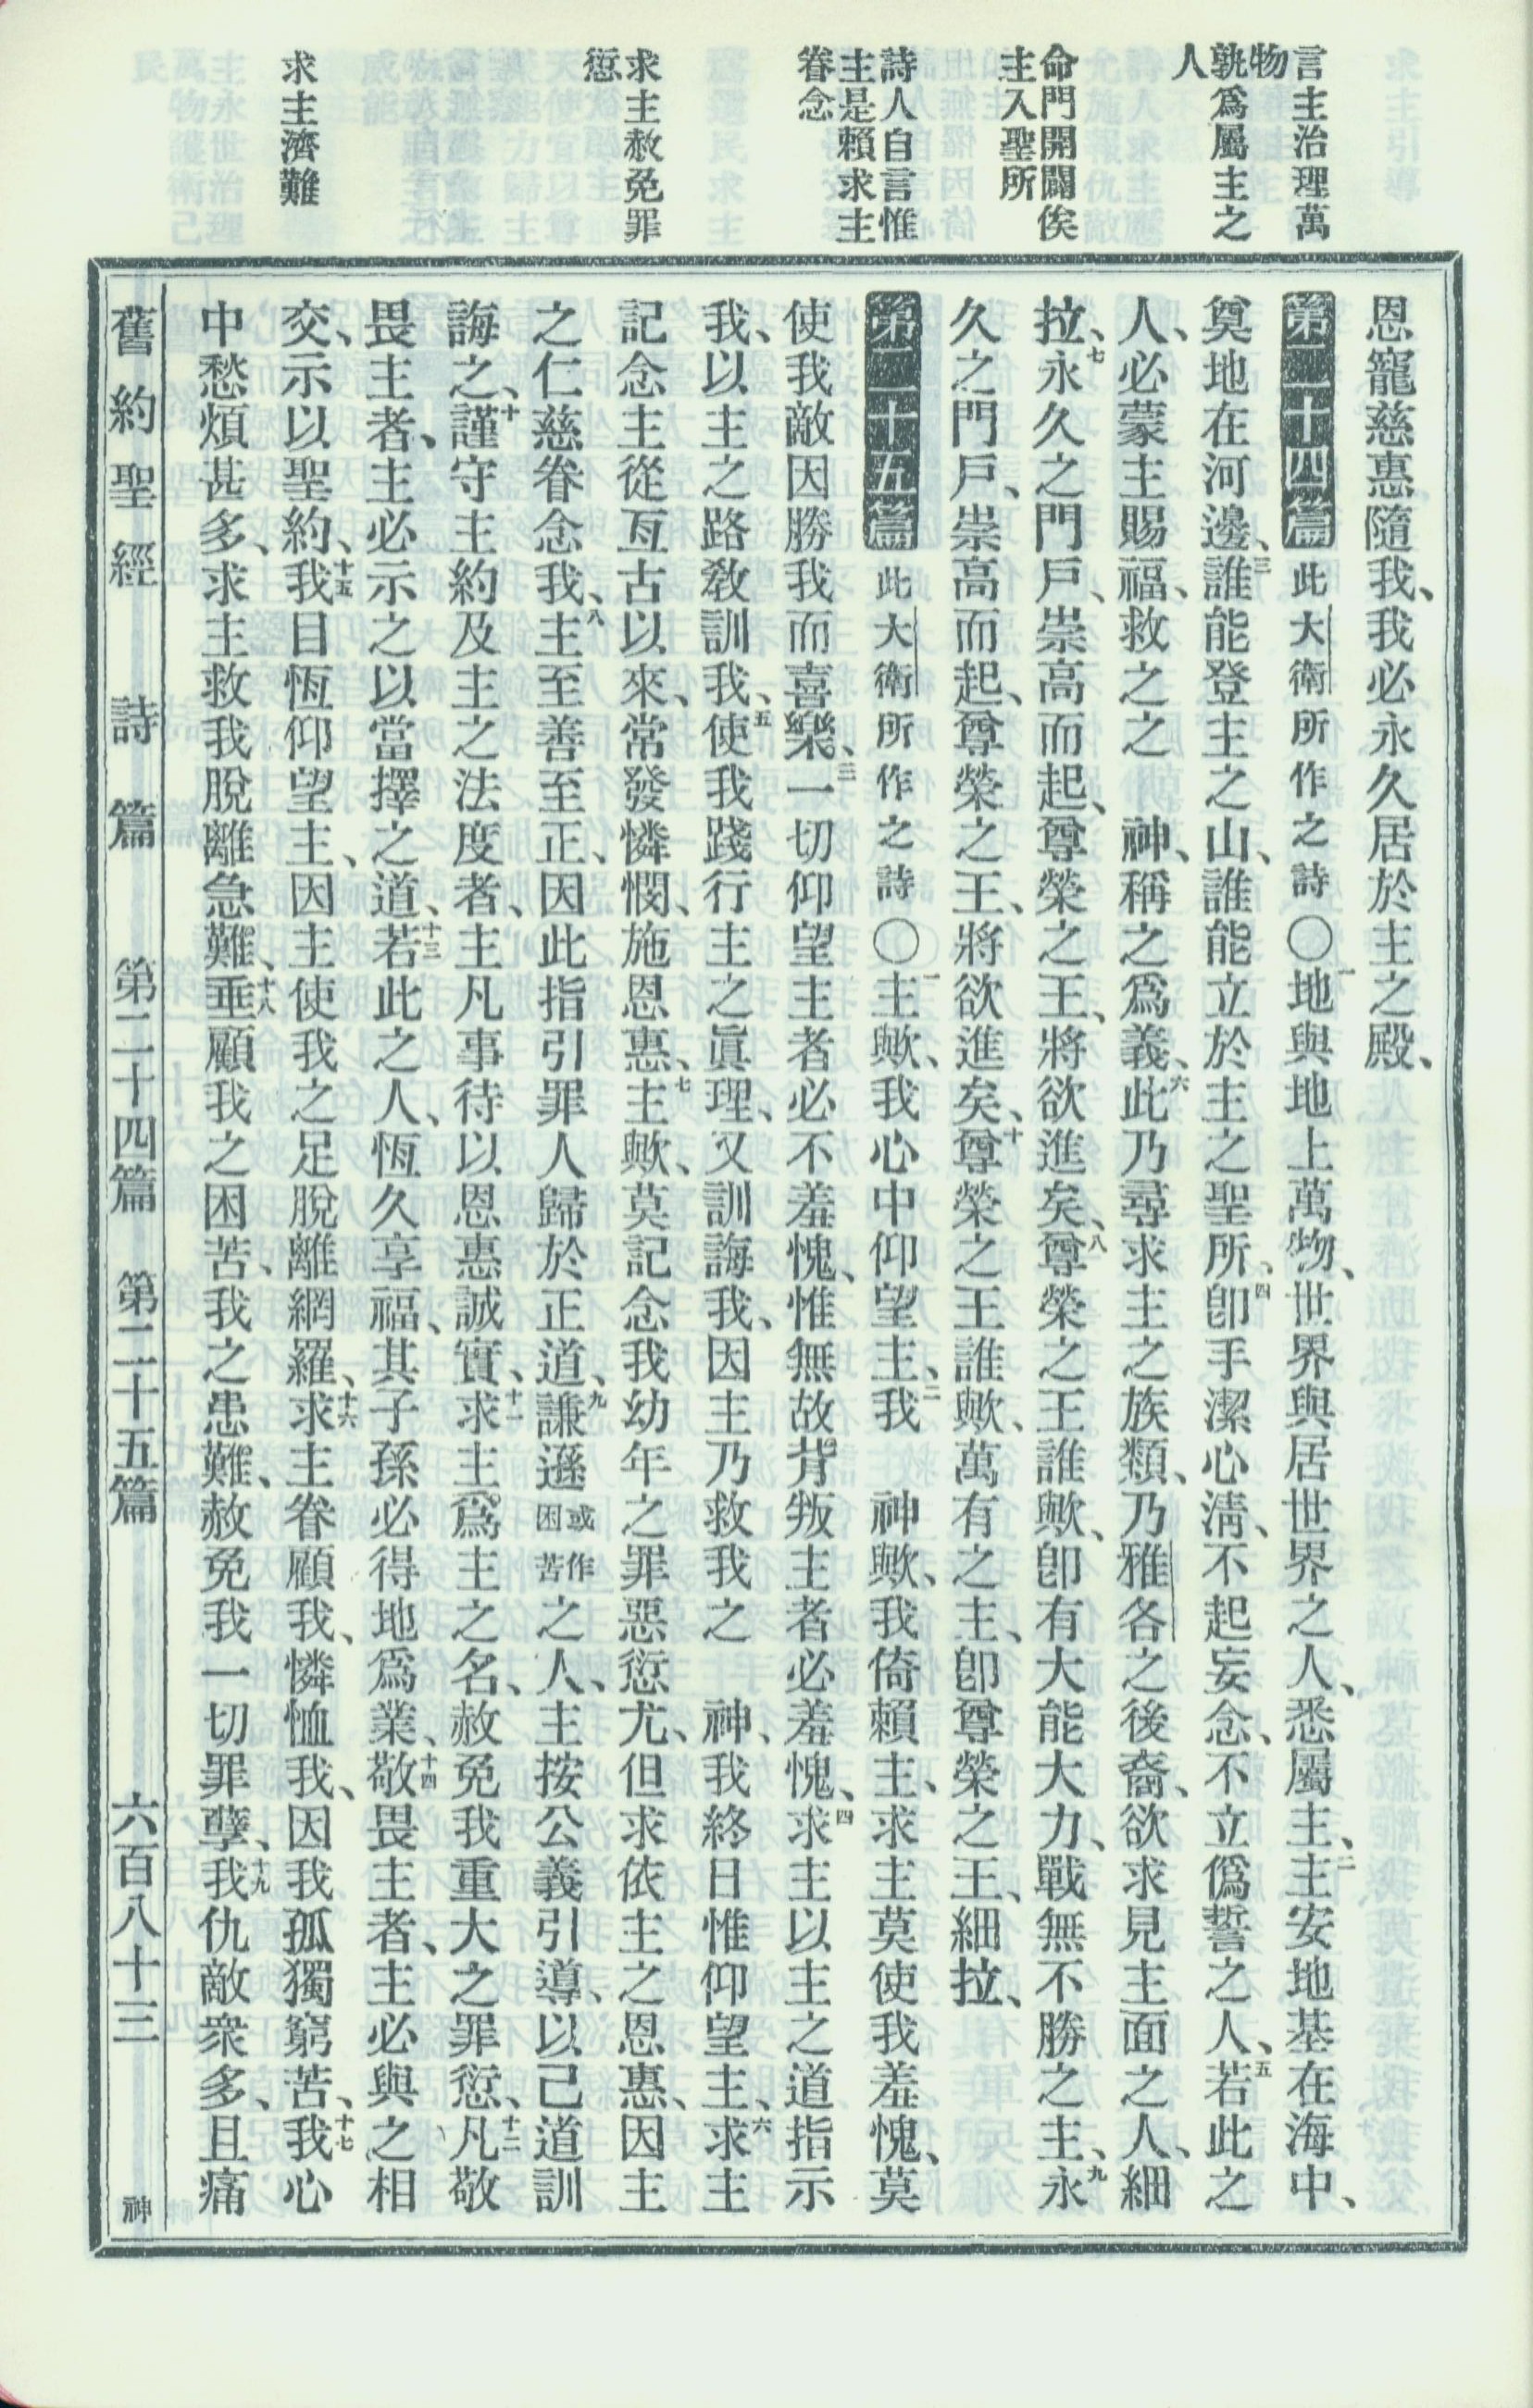 言主治理萬
物
孰爲屬主之
人
命門開闢俟
主入聖所
詩人自言惟
主是賴求主
眷念
求主赦免罪
愆
求主濟難
恩寵慈惠隨我、我必永久居於主之殿、
第二十四篇 此大衛所作之詩 〇一地與地上萬物、世界與居世界之人、悉屬主、二主安地基在海中、
奠地在河邊、三誰能登主之山、誰能立於主之聖所、四卽手潔心淸、不起妄念、不立僞誓之人、五若此之
人、必蒙主賜福、救之之 神、稱之爲義、六此乃尋求主之族類、乃雅各之後裔、欲求見主面之人、細
拉、七永久之門戶、崇高而起、尊榮之王、將欲進矣、八尊榮之王誰歟、卽有大能大力、戰無不勝之主、九永
久之門戶、崇高而起、尊榮之王、將欲進矣、十尊榮之王誰歟、萬有之主、卽尊榮之王、細拉、
第二十五篇 此大衛所作之詩 〇一主歟、我心中仰望主、二我 神歟、我倚賴主、求主莫使我羞愧、莫
使我敵因勝我而喜樂、三一切仰望主者必不羞愧、惟無故背叛主者必羞愧、四求主以主之道指示
我、以主之路敎訓我、五使我踐行主之眞理、又訓誨我、因主乃救我之 神、我終日惟仰望主、六求主
記念主從亙古以來、常發憐憫、施恩惠、七主歟、莫記念我幼年之罪惡愆尤、但求依主之恩惠、因主
之仁慈眷念我、八主至善至正、因此指引罪人歸於正道、九謙遜或作困苦之人、主按公義引導、以己道訓
誨之、十謹守主約及主之法度者、主凡事待以恩惠誠實、十一求主爲主之名、赦免我重大之罪愆、十二凡敬
畏主者、主必示之以當擇之道、十三若此之人、恆久享福、其子孫必得地爲業、十四敬畏主者、主必與之相
交、示以聖約、十五我目恆仰望主、因主使我之足脫離網羅、十六求主眷顧我、憐恤我、因我孤獨窮苦、十七我心
中愁煩甚多、求主救我脫離急難、十八垂顧我之困苦、我之患難、赦免我一切罪孽、十九我仇敵衆多、且痛
舊約聖經 詩篇 第二十四篇 第二十五篇 六百八十三 神